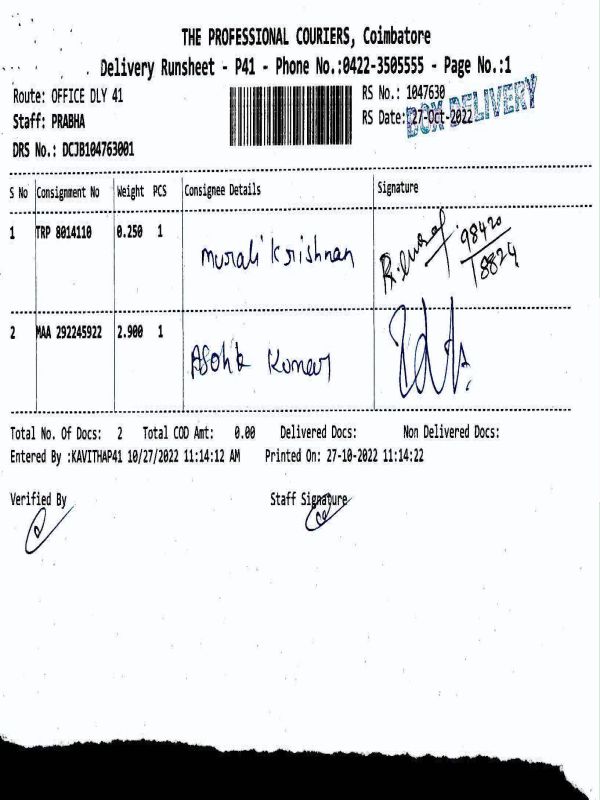 THE PROFESSIONAL COURIERS, Coimbatore
Delivery Runsheet - P41 - Phone No.:0422-3505555 - Page No.:1
Route: OFFICE DLY 41
RS No.: 1047630
Staff: PRABHA
RS Date: 27-Oct-2022
BOX DELIVERY
DRS No.: DCJB104763001
S No Consignment No Weight PCS Consignee Details Signature
1 TRP 8014110 0.250 1 Murali Krishnan 98420
18824
2 MAA 292245922 2.900 1 Ashok Kumar
Total No. Of Docs: 2 Total COD Amt: 0.00 Delivered Docs: Non Delivered Docs:
Entered By :KAVITHAP41 10/27/2022 11:14:12 AM Printed On: 27-10-2022 11:14:22
Verified By Staff Signature